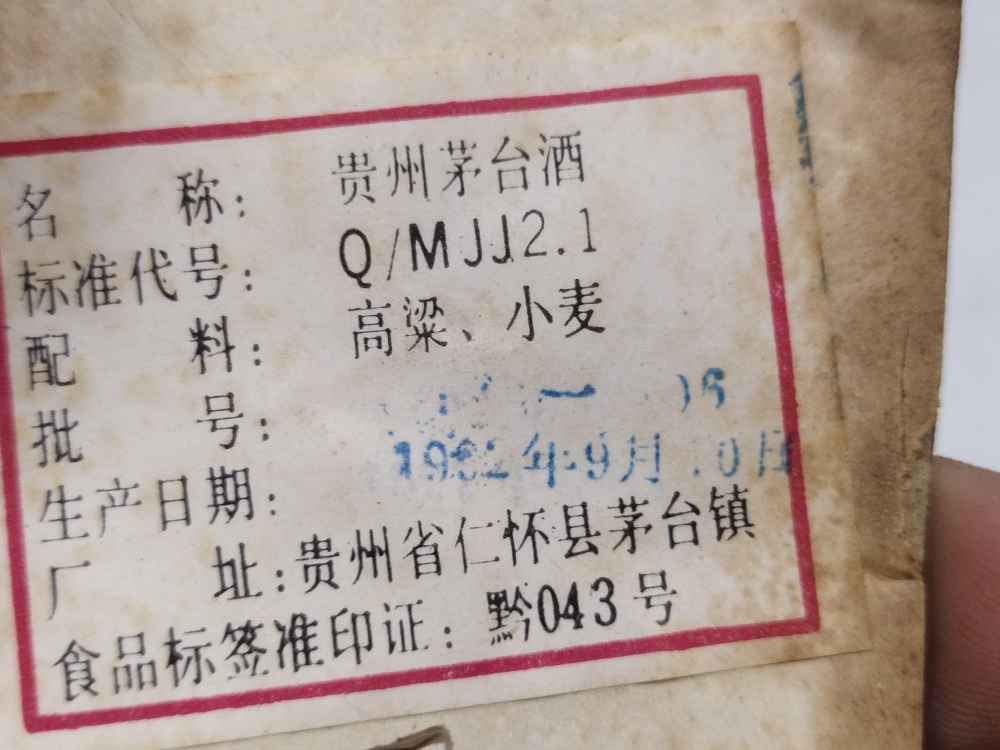 名 称: 贵州茅台酒
标准代号: Q/MJJ2.1
配 料: 高粱、小麦
批 号:
生产日期: 年9月
厂 址: 贵州省仁怀县茅台镇
食品标签准印证: 黔043号